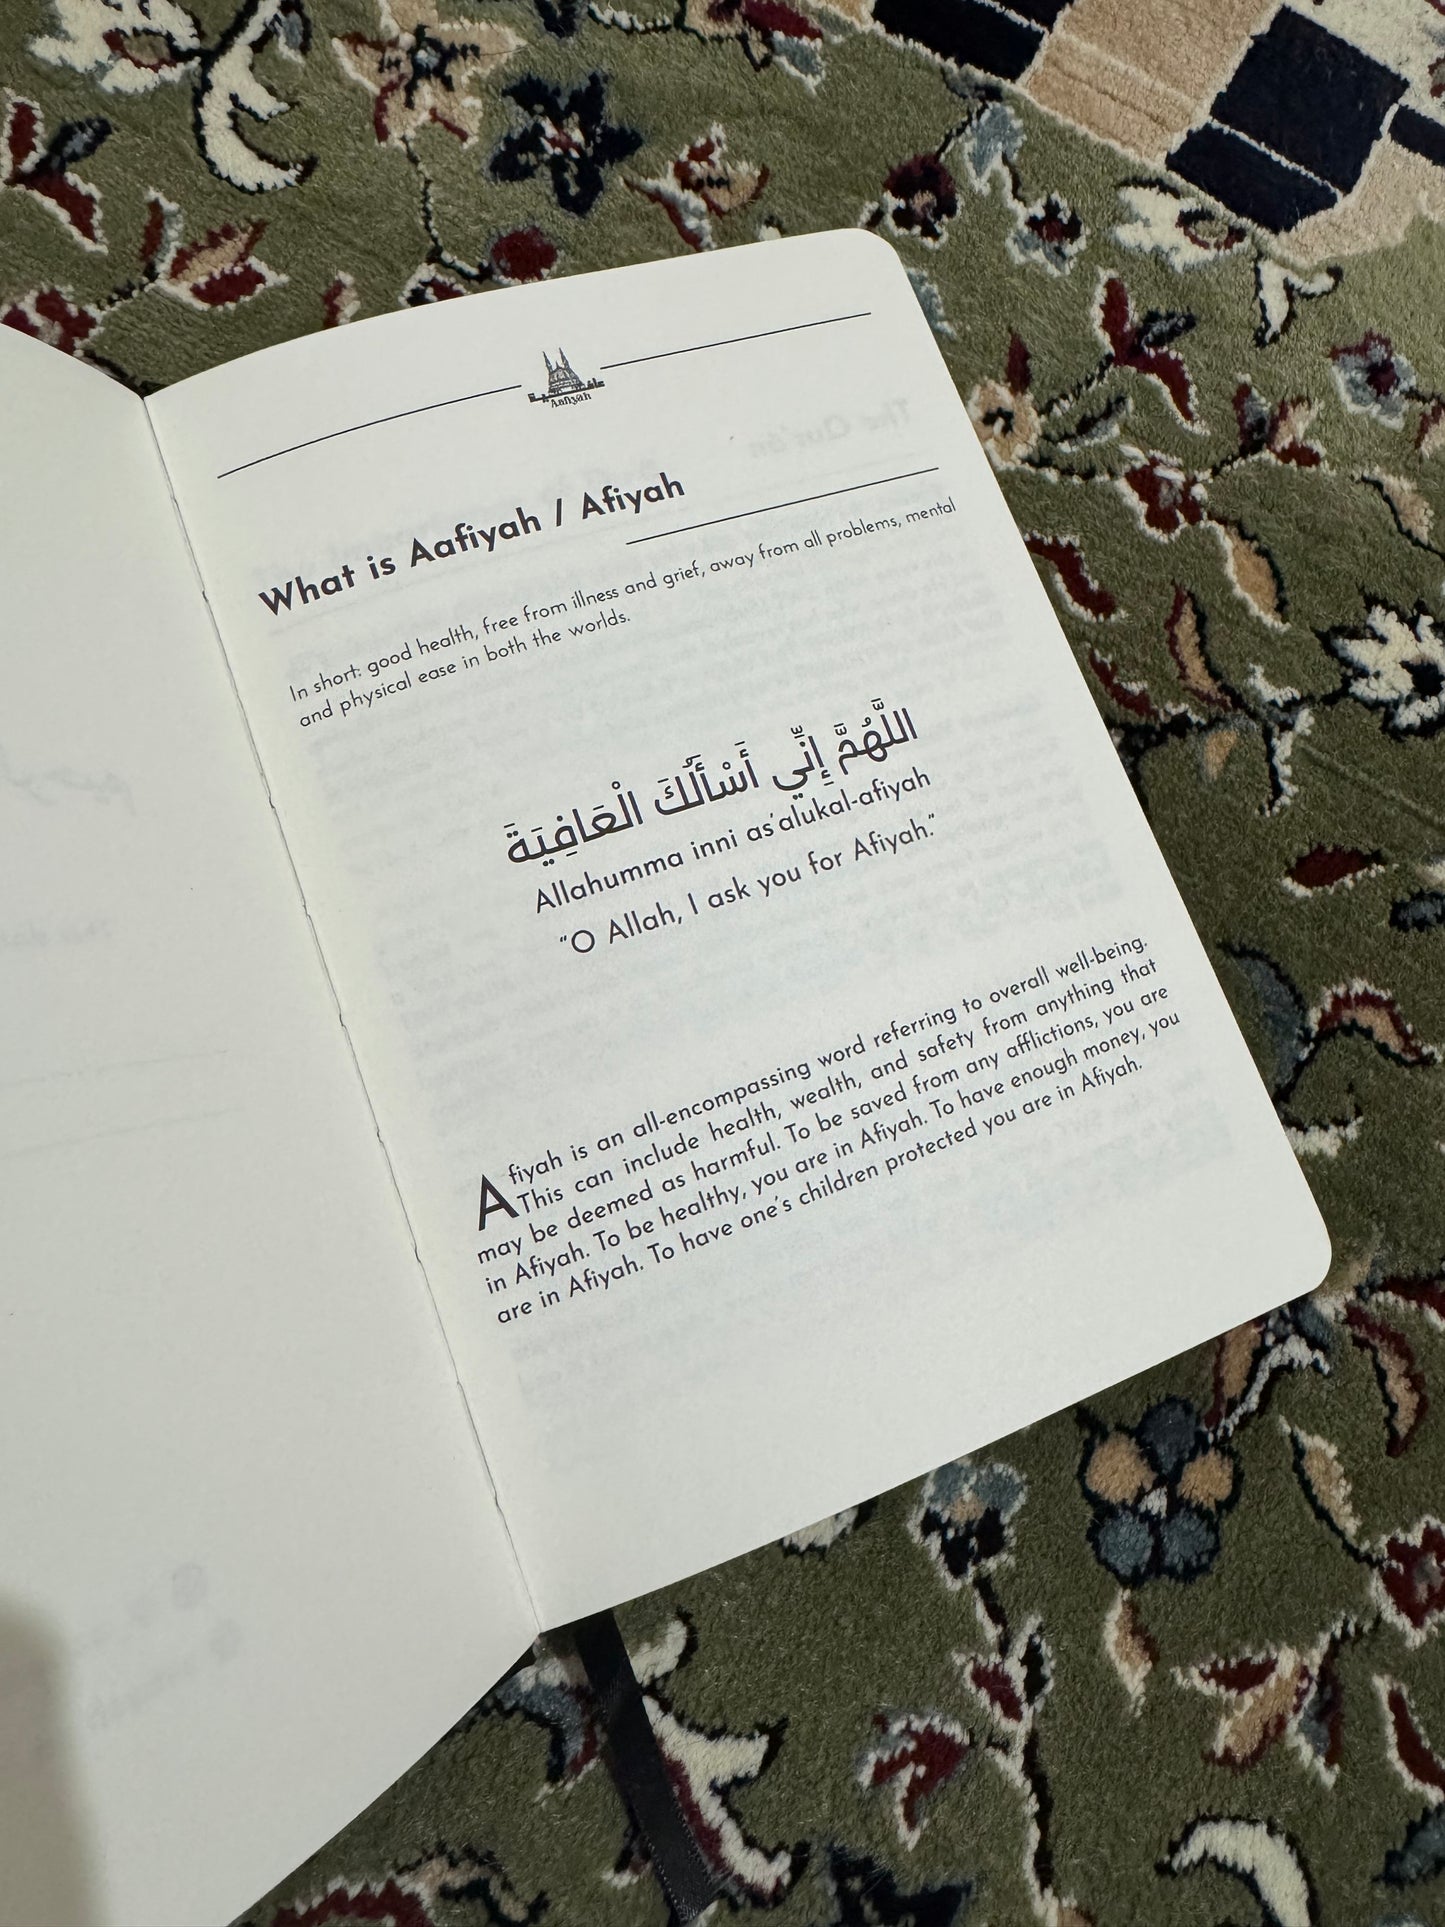 Aafiyah
What is Aafiyah / Afiyah
In short: good health, free from illness and grief, away from all problems, mental
and physical ease in both the worlds.
اللَّهُمَّ إِنِّي أَسْأَلُكَ الْعَافِيَةَ
Allahumma inni as'alukal-afiyah
"O Allah, I ask you for Afiyah."
Afiyah is an all-encompassing word referring to overall well-being.
This can include health, wealth, and safety from anything that
may be deemed as harmful. To be saved from any afflictions, you are
in Afiyah. To be healthy, you are in Afiyah. To have enough money, you
are in Afiyah. To have one's children protected you are in Afiyah.